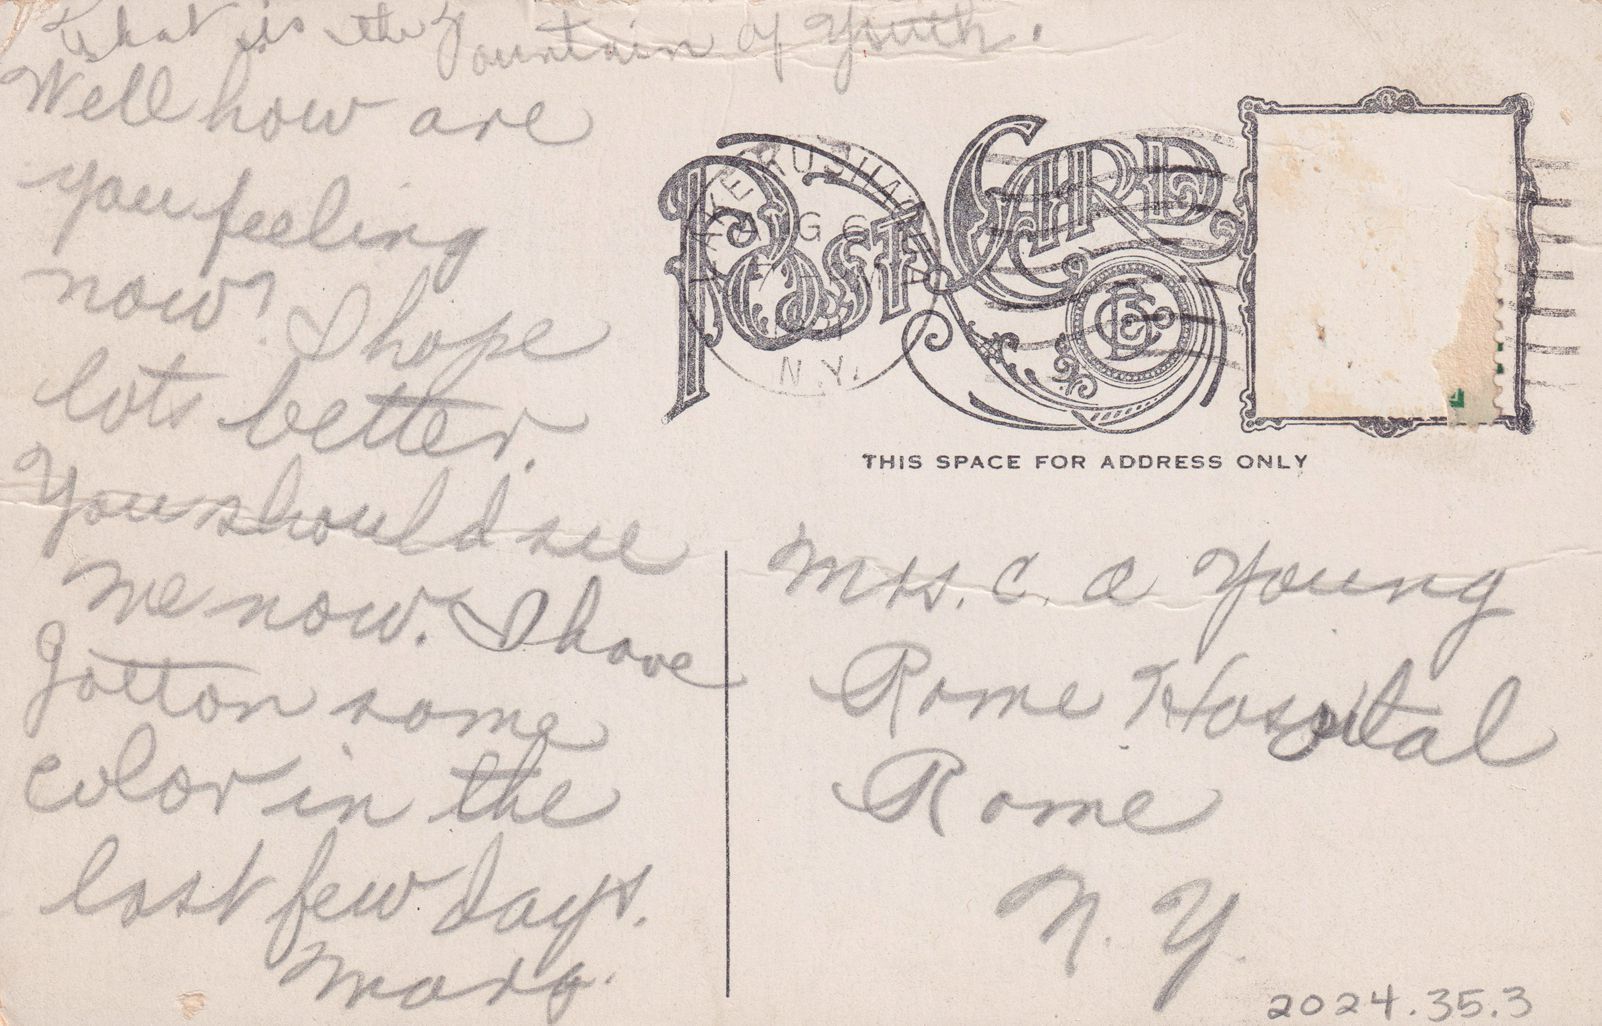 What is the Fountain of Youth.
Well how are
you feeling
now? I hope
lots better.
You should see
me now. I have
gotton some
color in the
last few days.
Marg.
POST CARD
AUG 6
N.Y.
THIS SPACE FOR ADDRESS ONLY
Mrs. C. A Young
Rome Hospital
Rome
N. Y.
2024.35.3